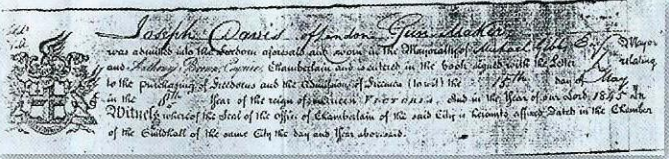 Joseph Davis of London Gun Maker
was admitted into the Freedom aforesaid and sworn in the Mayoralty of Michael Gibbs Esqr Mayor
and Anthony Brown Esquire, Chamberlain and is entered in the book signed with the Letter relating
to the purchasing of Freedoms and the Admission of Freemen (to wit) the 15th day of May
in the 8th Year of the reign of Queen Victoria. And in the Year of our Lord 1845 In
Witness whereof the Seal of the Office of Chamberlain of the said City is hereunto affixed Dated in the Chamber
of the Guildhall of the same City the day and Year abovesaid.